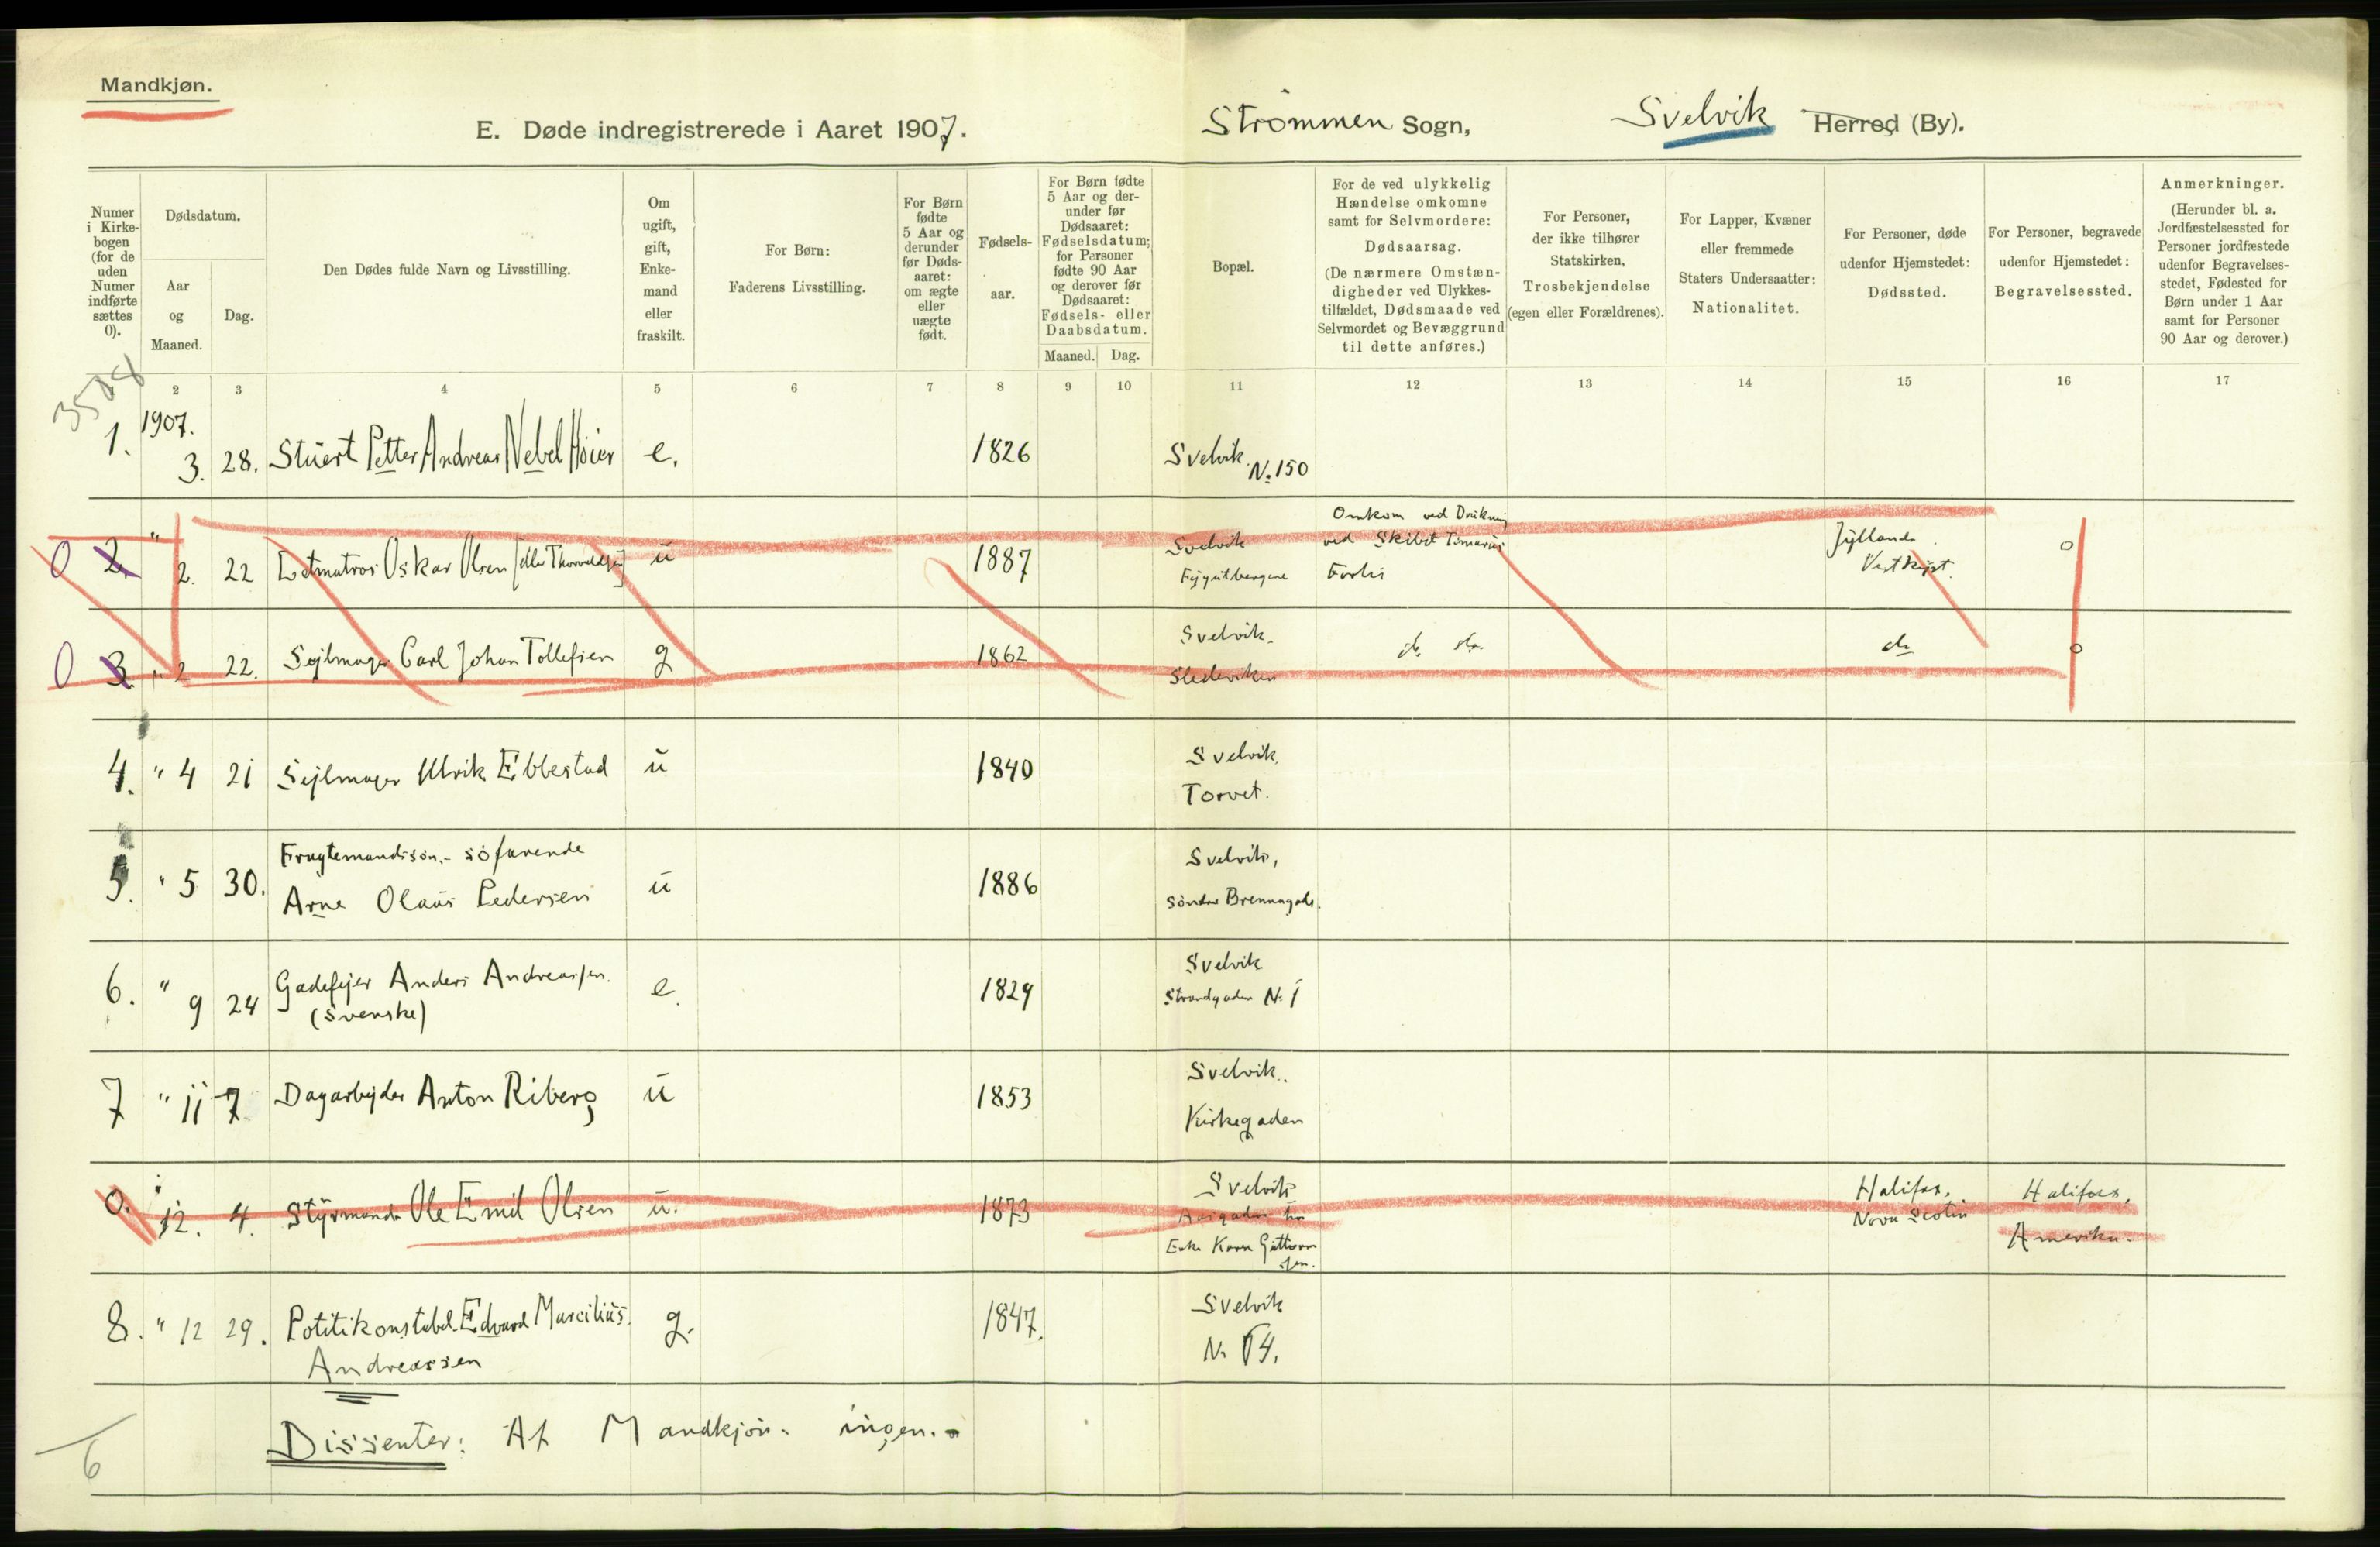 Mandkjøn.
E. Døde indregistrerede i Aaret 1907.
Strömmen Sogn,
Svelvik Herred (By).
Numer i Kirkebogen (for de uden Numer indførte sættes 0).
Dødsdatum.
Aar og Maaned.
Dag.
Den Dødes fulde Navn og Livsstilling.
Om ugift, gift, Enkemand eller fraskilt.
For Børn: Faderens Livsstilling.
For Børn fødte 5 Aar og derunder før Dødsaaret: om ægte eller uægte født.
Fødselsaar.
For Børn fødte 5 Aar og derunder før Dødsaaret: Fødselsdatum; for Personer fødte 90 Aar og derover før Dødsaaret: Fødsels- eller Daabsdatum.
Maaned. Dag.
Bopæl.
For de ved ulykkelig Hændelse omkomne samt for Selvmordere: Dødsaarsag. (De nærmere Omstændigheder ved Ulykkestilfældet, Dødsmaade ved Selvmordet og Bevæggrund til dette anføres.)
For Personer, der ikke tilhører Statskirken, Trosbekjendelse (egen eller Forældrenes).
For Lapper, Kvæner eller fremmede Staters Undersaatter: Nationalitet.
For Personer, døde udenfor Hjemstedet: Dødssted.
For Personer, begravede udenfor Hjemstedet: Begravelsessted.
Anmerkninger. (Herunder bl. a. Jordfæstelsessted for Personer jordfæstede udenfor Begravelsesstedet, Fødested for Børn under 1 Aar samt for Personer 90 Aar og derover.)
2 3 4 5 6 7 8 9 10 11 12 13 14 15 16 17
1. 1907. 3. 28. Stuert Petter Andreas Nebel Høier e. 1826 Svelvik No 150
0 2. " 2. 22 Letmatros Oskar Olsen u 1887 Svelvik Omkom ved ved Skibet Jyllands Vestkyst. 0
0 3. " 2 22. Sejlmager Carl Johan Tollefsen g 1862 Svelvik. do. do. do 0
4. " 4 21 Sejlmager Ulrik Ebbestad u 1840 Svelvik. Torvet.
5. " 5 30. Fragtemandssön. - söfarende
Arne Olaus Pedersen u 1886 Svelvik, Söndre Brennagade.
6. " 9 24 Gadefejer Anders Andreassen. (Svenske) e. 1829 Svelvik Strandgaden No 1
7 " 11 7 Dagarbejder Anton Riberg u 1853 Svelvik. Kirkegaden
0. " 12. 4. Styrmand Ole Emil Olsen u. 1873 Svelvik Enke Karen Halifax, Nova Scotia Halifax, Amerika.
8. " 12 29. Politikonstabel Edvard Marcilius. g. 1847. Svelvik
Andreassen
Dissenter: Af Mandkjön. ingen.-
6